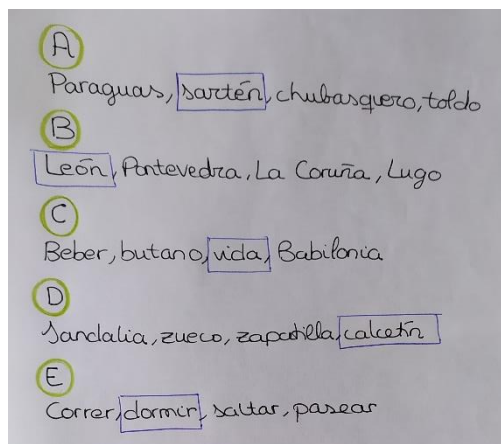 A
Paraguas, sartén, chubasquero, toldo
B
León, Pontevedra, La Coruña, Lugo
C
Beber, butano, vida, Babilonia
D
Sandalia, zueco, zapatilla, calcetín
E
Correr, dormir, saltar, pasear